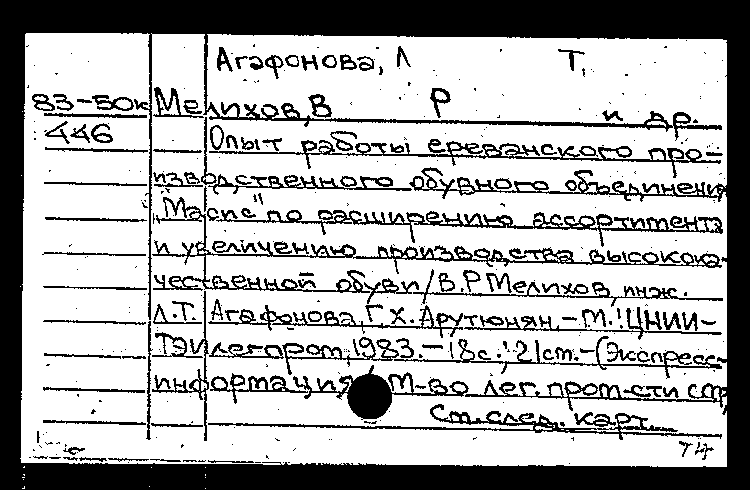 Агафонова, Л Т.
83-50к Мелихов, В Р и др.
446 Опыт работы ереванского про-
изводственного обувного объединения
"Масис" по расширению ассортимента
и увеличению производства высокока-
чественной обуви/В.Р Мелихов, инж.
Л.Т. Агафонова, Г.Х. Арутюнян. - М.: ЦНИИ-
ТЭИлегпром, 1983. - 18с.; 21см. - (Экспресс-
информация/ М-во лег. пром-сти СССР
См. след. карт.
т4